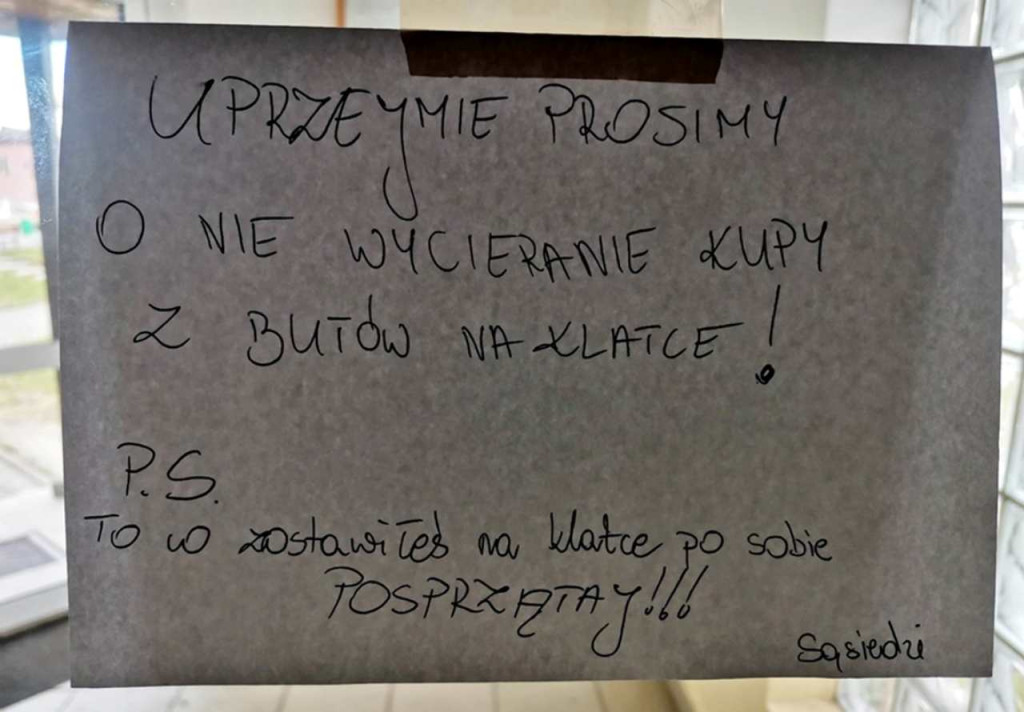 UPRZEJMIE PROSIMY
O NIE WYCIERANIE KUPY
Z BUTÓW NA KLATCE!
P.S.
TO CO zostawiłeś na klatce po sobie
POSPRZĄTAJ!!!
Sąsiedzi